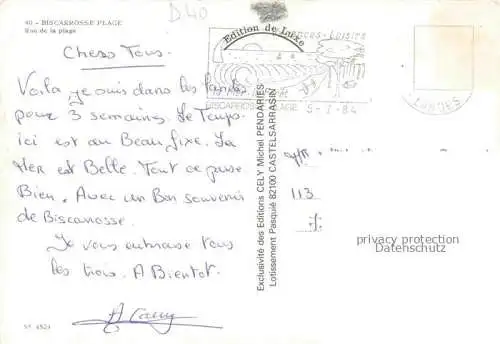 40 - BISCARROSSE PLAGE
Rue de la plage
D40
Edition de Luxe
BISCARROSSE PLAGE 5-7-84
LANDES
Chers Tous.
Voila, je suis dans les landes
pour 3 semaines. Le Temps
ici est au Beau fixe. La
Mer est Belle. Tout ce passe
Bien. Avec un Bon souvenir
de Biscarosse.
Je vous embrasse tous
les trois. A Bientot.
Exclusivité des Editions CELY Michel PENDARIES
Lotissement Pasquié 82100 CASTELSARRASIN
113
privacy protection
Datenschutz